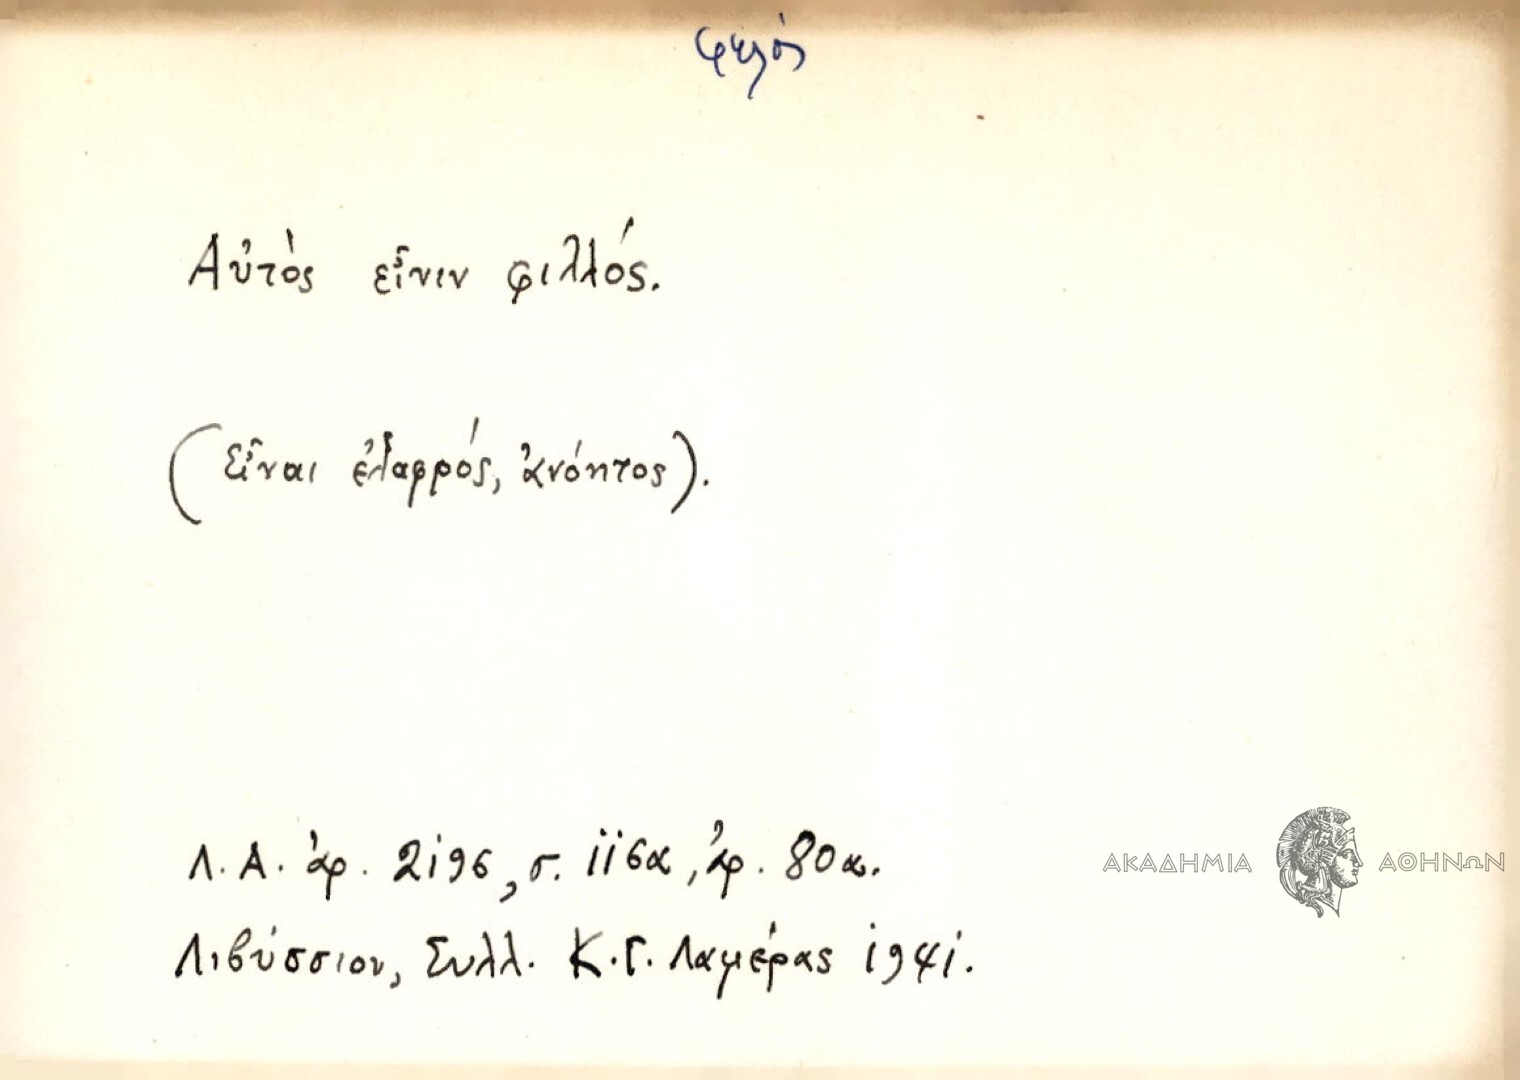 φελλός
Αὐτὸς εἶνιν φιλλός.
(εἶναι ἐλαφρός, ἀνόητος).
Λ. Α. ἀρ. 2196, σ. 116α, ἀρ. 80α.
ΑΚΑΔΗΜΙΑ ΑΘΗΝΩΝ
Λιβύσσιον, Συλλ. Κ. Γ. Λαμέρας 1941.